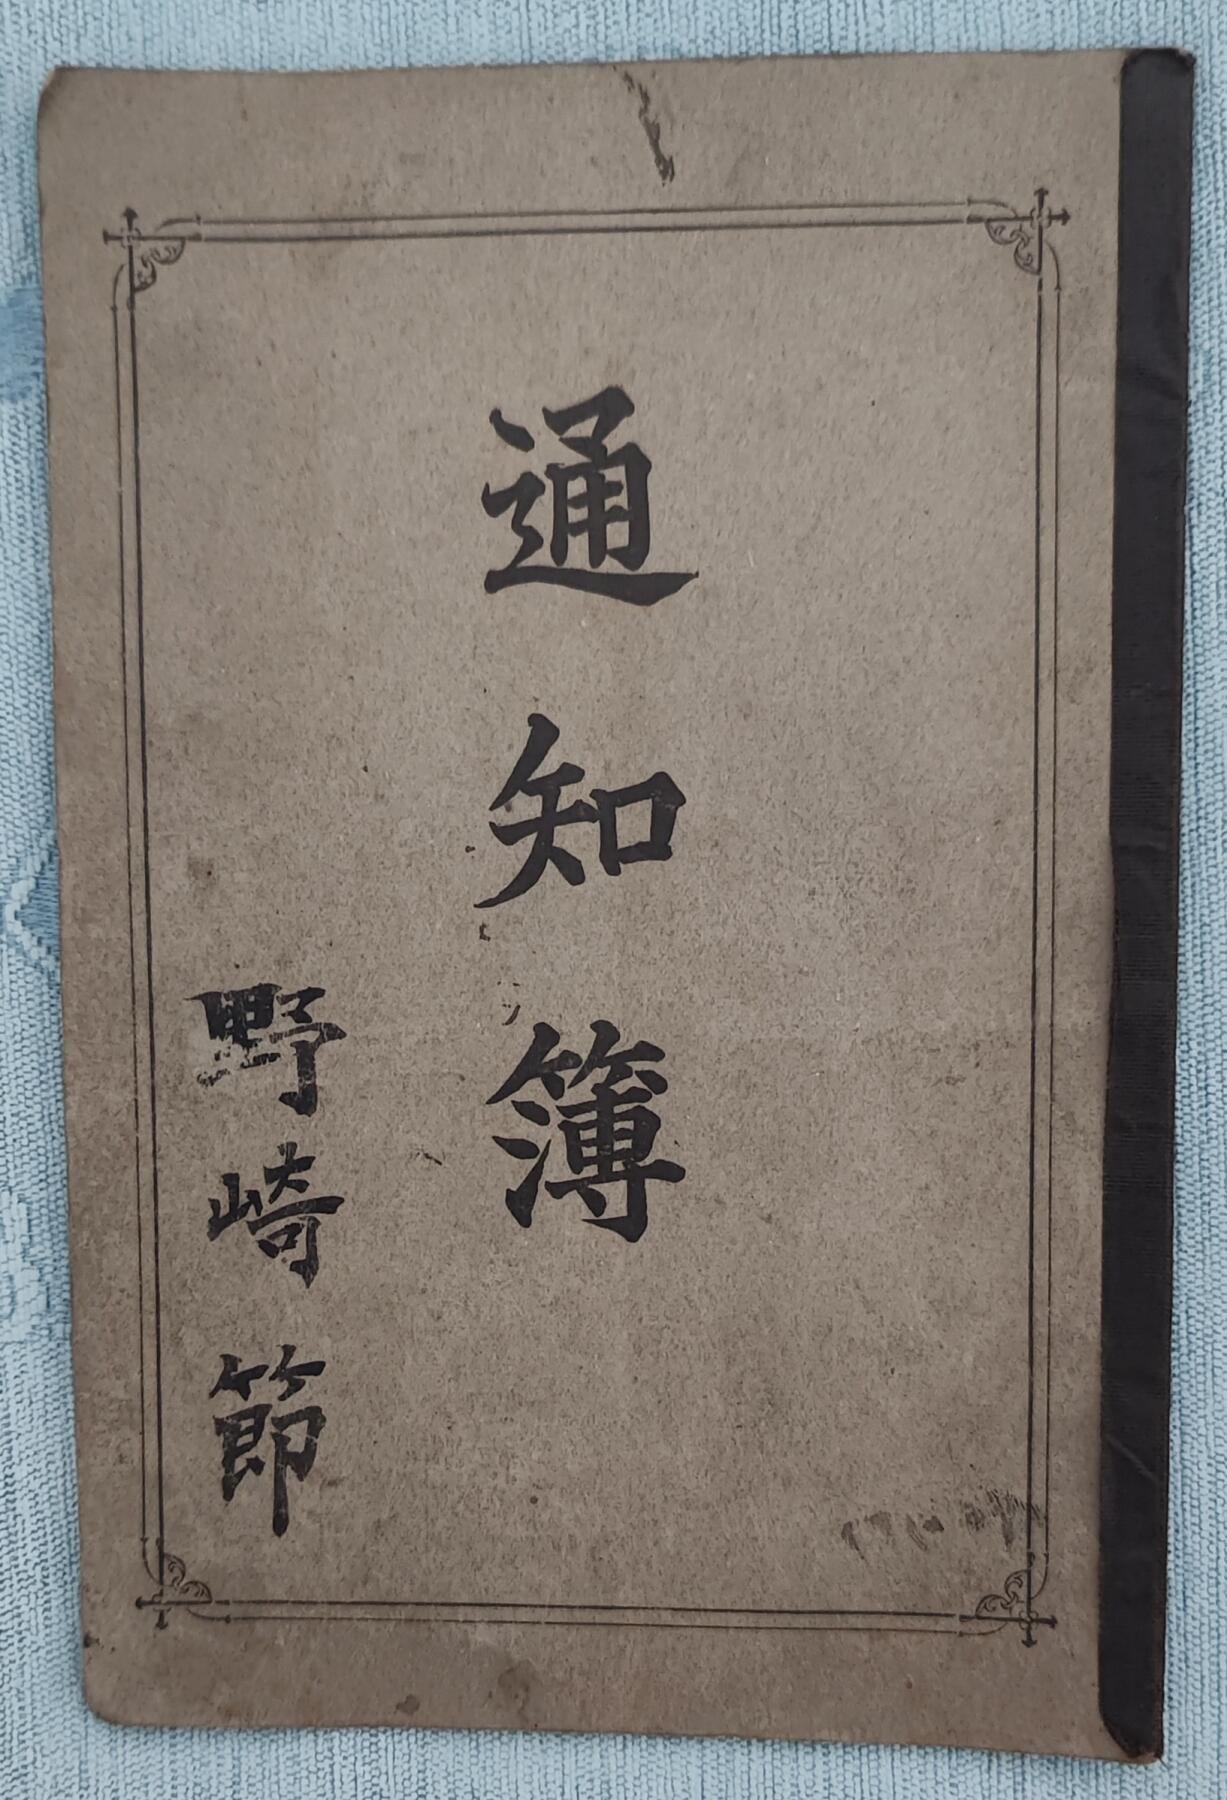 通知簿
野崎節